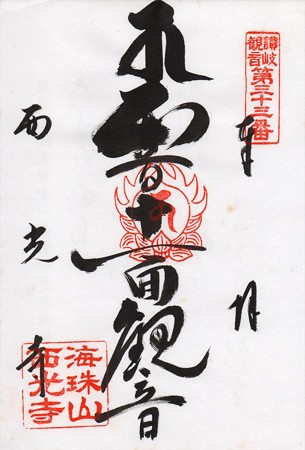 讃岐
観音
第三十三番
奉
十一面観音
西光寺
海珠山
西光寺